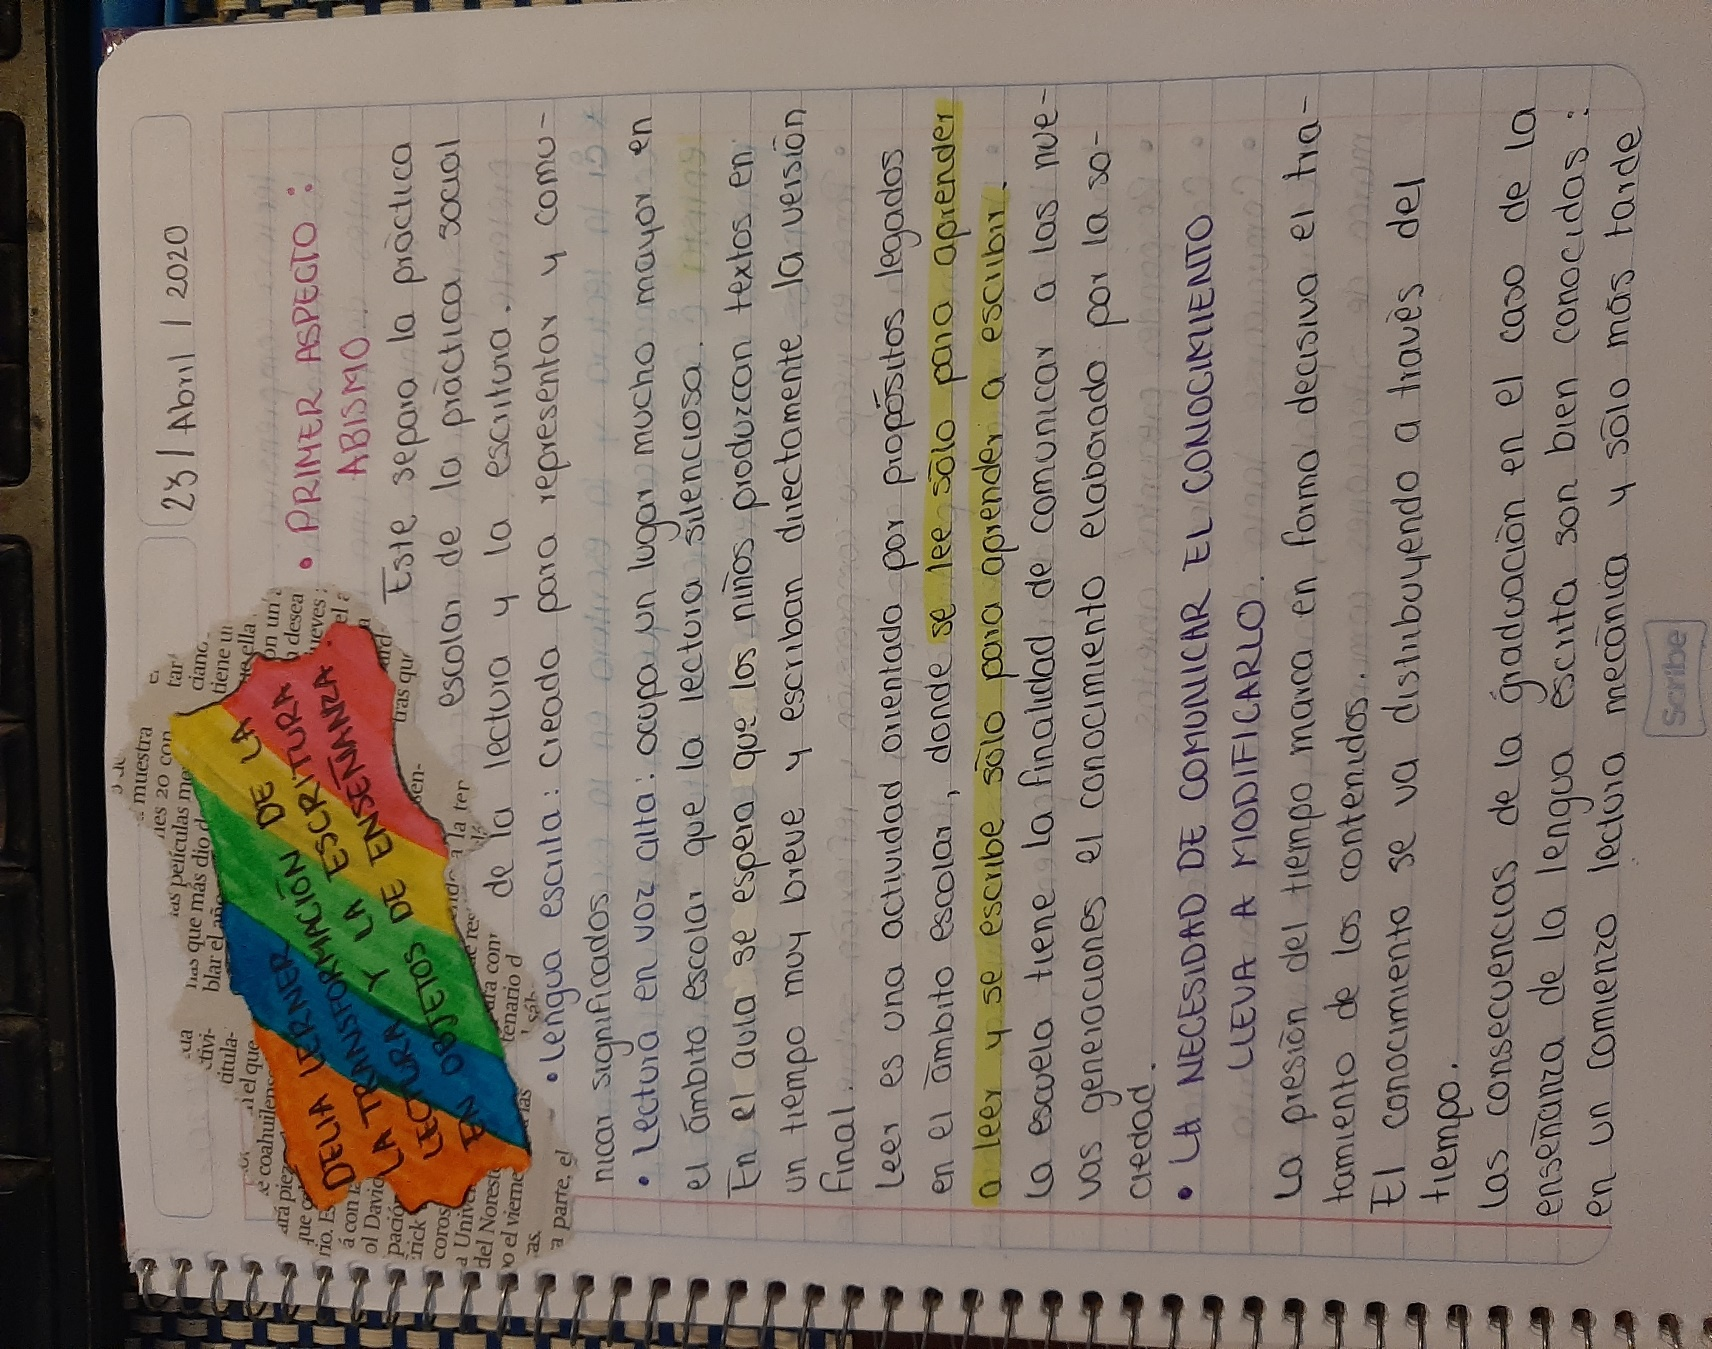 23 / Abril / 2020
DELIA LERNER
LA TRANSFORMACIÓN DE LA
LECTURA Y LA ESCRITURA
EN OBJETOS DE ENSEÑANZA.
• PRIMER ASPECTO:
ABISMO.
Este separa la pràctica
escolar de la pràctica social
de la lectura y la escritura.
• Lengua escrita: creada para representar y comu-
nicar significados
• Lectura en voz alta: ocupa un lugar mucho mayor en
el ámbito escolar que la lectura silenciosa.
En el aula se espera que los niños produzcan textos en
un tiempo muy breve y escriban directamente la versiòn
final.
Leer es una actividad orientada por propósitos legados
en el ámbito escolar, donde se lee sòlo para aprender
a leer y se escribe sòlo para aprender a escribir.
La escuela tiene la finalidad de comunicar a las nue-
vas generaciones el conocimiento elaborado por la so-
ciedad.
• LA NECESIDAD DE COMUNICAR EL CONOCIMIENTO
LLEVA A MODIFICARLO.
La presiòn del tiempo marca en forma decisiva el tra-
tamiento de los contenidos.
El conocimiento se va distribuyendo a travès del
tiempo.
Las consecuencias de la graduaciòn en el caso de la
enseñanza de la lengua escrita son bien conocidas:
en un comienzo lectura mecànica y sòlo màs tarde
Scribe
muestra
las películas
que más dio
blar el año
tiene un
desea
ueves
tras que
la ter
tenario d
a parte, el
o el vierne
del Norest
a Univ
coros
rick
pación
ol David
á con la